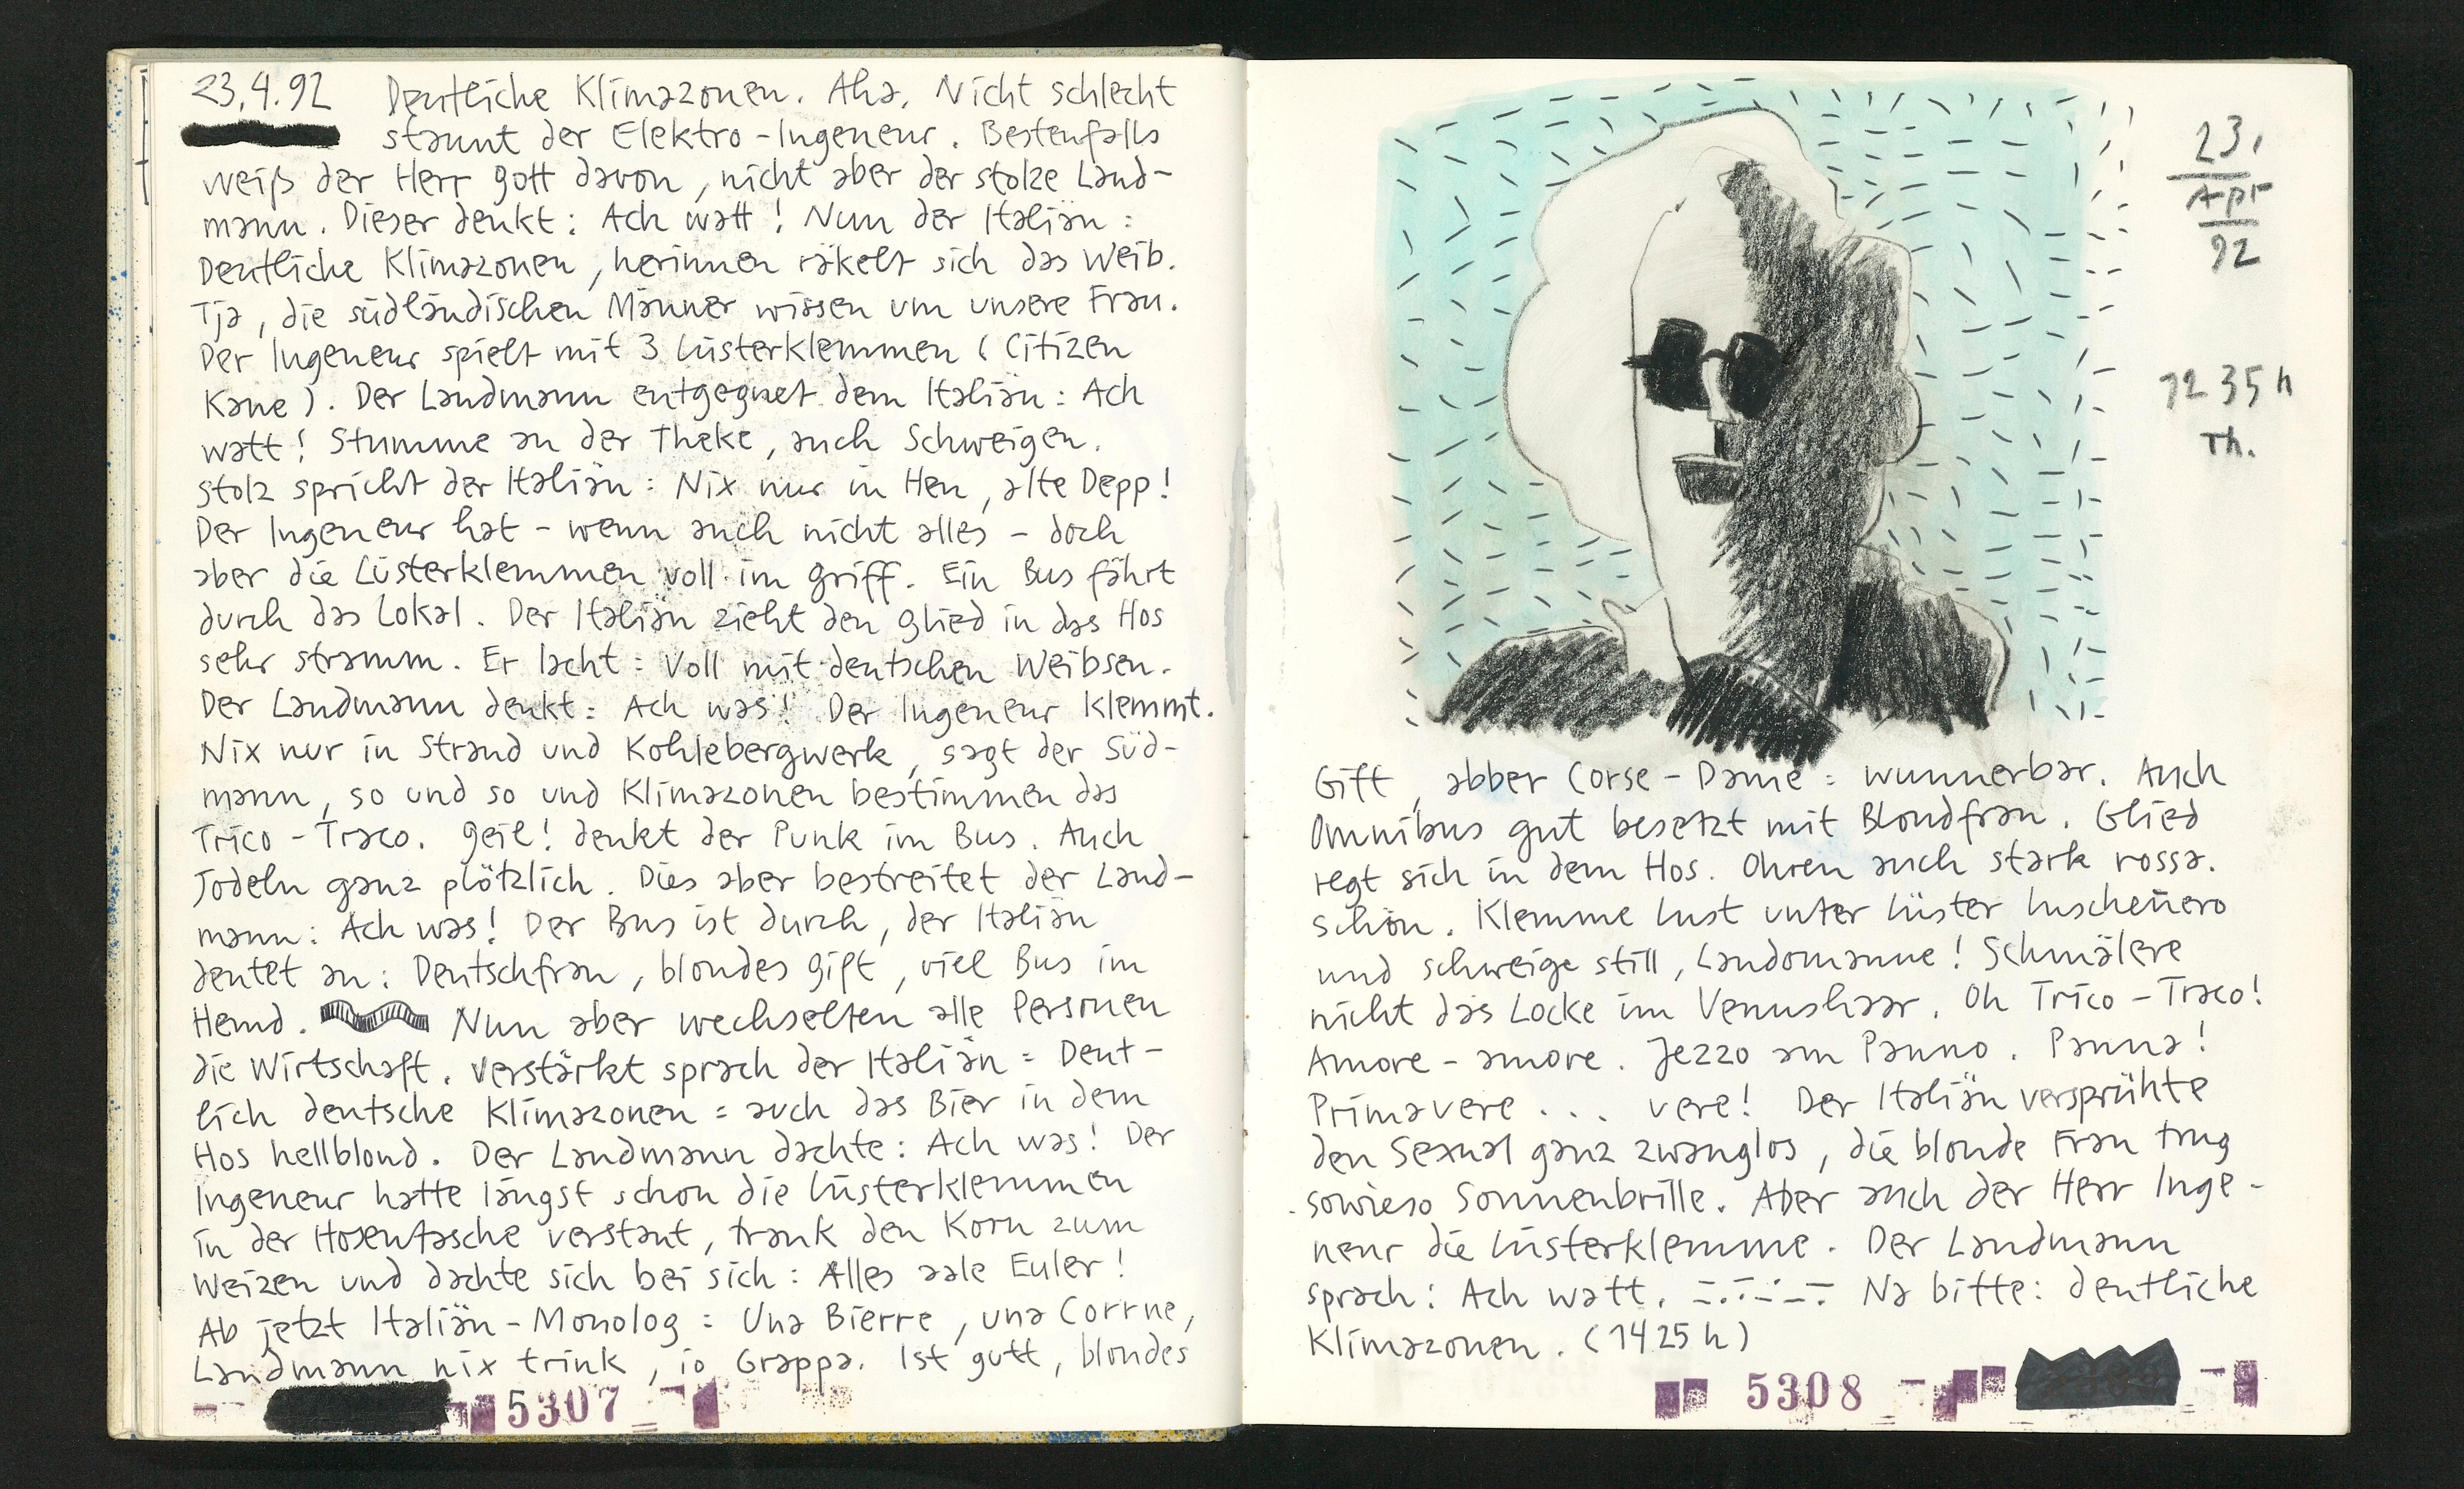 23.4.92 Deutliche Klimazonen. Aha. Nicht schlecht
staunt der Elektro-Ingeneur. Bestenfalls
weiß der Herr gott davon, nicht aber der stolze Land-
mann. Dieser denkt: Ach watt! Nun der Italiän:
Deutliche Klimazonen, herinnen räkelt sich das Weib.
Tja, die südländischen Männer wissen um unsere Frau.
Der Ingeneur spielt mit 3 Lüsterklemmen (Citizen
Kane). Der Landmann entgegnet dem Italiän: Ach
watt! Stumme an der Theke, auch Schweigen.
Stolz spricht der Italiän: Nix nur in Heu, alte Depp!
Der Ingeneur hat - wenn auch nicht alles - doch
aber die Lüsterklemmen voll im griff. Ein Bus fährt
durch das Lokal. Der Italiän zieht den glied in das Hos
sehr stramm. Er lacht: Voll mit deutschen Weibsen.
Der Landmann denkt: Ach was! Der Ingeneur klemmt.
Nix nur in Strand und Kohlebergwerk, sagt der Süd-
mann, so und so und Klimazonen bestimmen das
Trico-Traco. geil! denkt der Punk im Bus. Auch
Jodeln ganz plötzlich. Dies aber bestreitet der Land-
mann: Ach was! Der Bus ist durch, der Italiän
deutet an: Deutschfrau, blondes gift, viel Bus im
Hemd. Nun aber wechselten alle Personen
die Wirtschaft. Verstärkt sprach der Italiän = Deut-
lich deutsche Klimazonen = auch das Bier in dem
Hos hellblond. Der Landmann dachte: Ach was! Der
Ingeneur hatte längst schon die Lüsterklemmen
in der Hosentasche verstaut, trank den Korn zum
Weizen und dachte sich bei sich: Alles aale Euler!
Ab jetzt Italiän-Monolog = Una Bierre, una Corrne,
Landmann nix trink, io Grappa. Ist gutt, blondes
5307
23.
Apr
92
12 35 h
Th.
Gift, abber Corse-Dame = wunnerbar. Auch
Omnibus gut besetzt mit Blondfrau. Glied
regt sich in dem Hos. Ohren auch stark rossa.
schön. Klemme Lust unter Lüster Inscheñero
und schweige still, Landomanne! Schmälere
nicht das Locke im Venushaar. Oh Trico-Traco!
Amore-amore. Jezzo am Panno. Panna!
Primavere ... vere! Der Italiän versprühte
den Sexual ganz zwanglos, die blonde Frau trug
sowieso Sonnenbrille. Aber auch der Herr Inge-
neur die Lüsterklemme. Der Landmann
sprach: Ach watt. Na bitte: deutliche
Klimazonen. (14 25 h)
5308